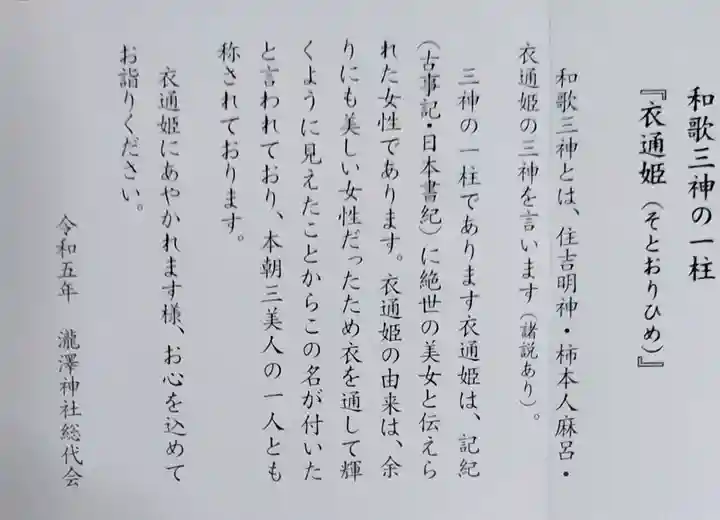 和歌三神の一柱
『衣通姫（そとおりひめ）』
和歌三神とは、住吉明神・柿本人麻呂・
衣通姫の三神を言います（諸説あり）。
三神の一柱であります衣通姫は、記紀
（古事記・日本書紀）に絶世の美女と伝えら
れた女性であります。衣通姫の由来は、余
りにも美しい女性だったため衣を通して輝
くように見えたことからこの名が付いた
と言われており、本朝三美人の一人とも
称されております。
衣通姫にあやかれます様、お心を込めて
お詣りください。
令和五年　瀧澤神社総代会